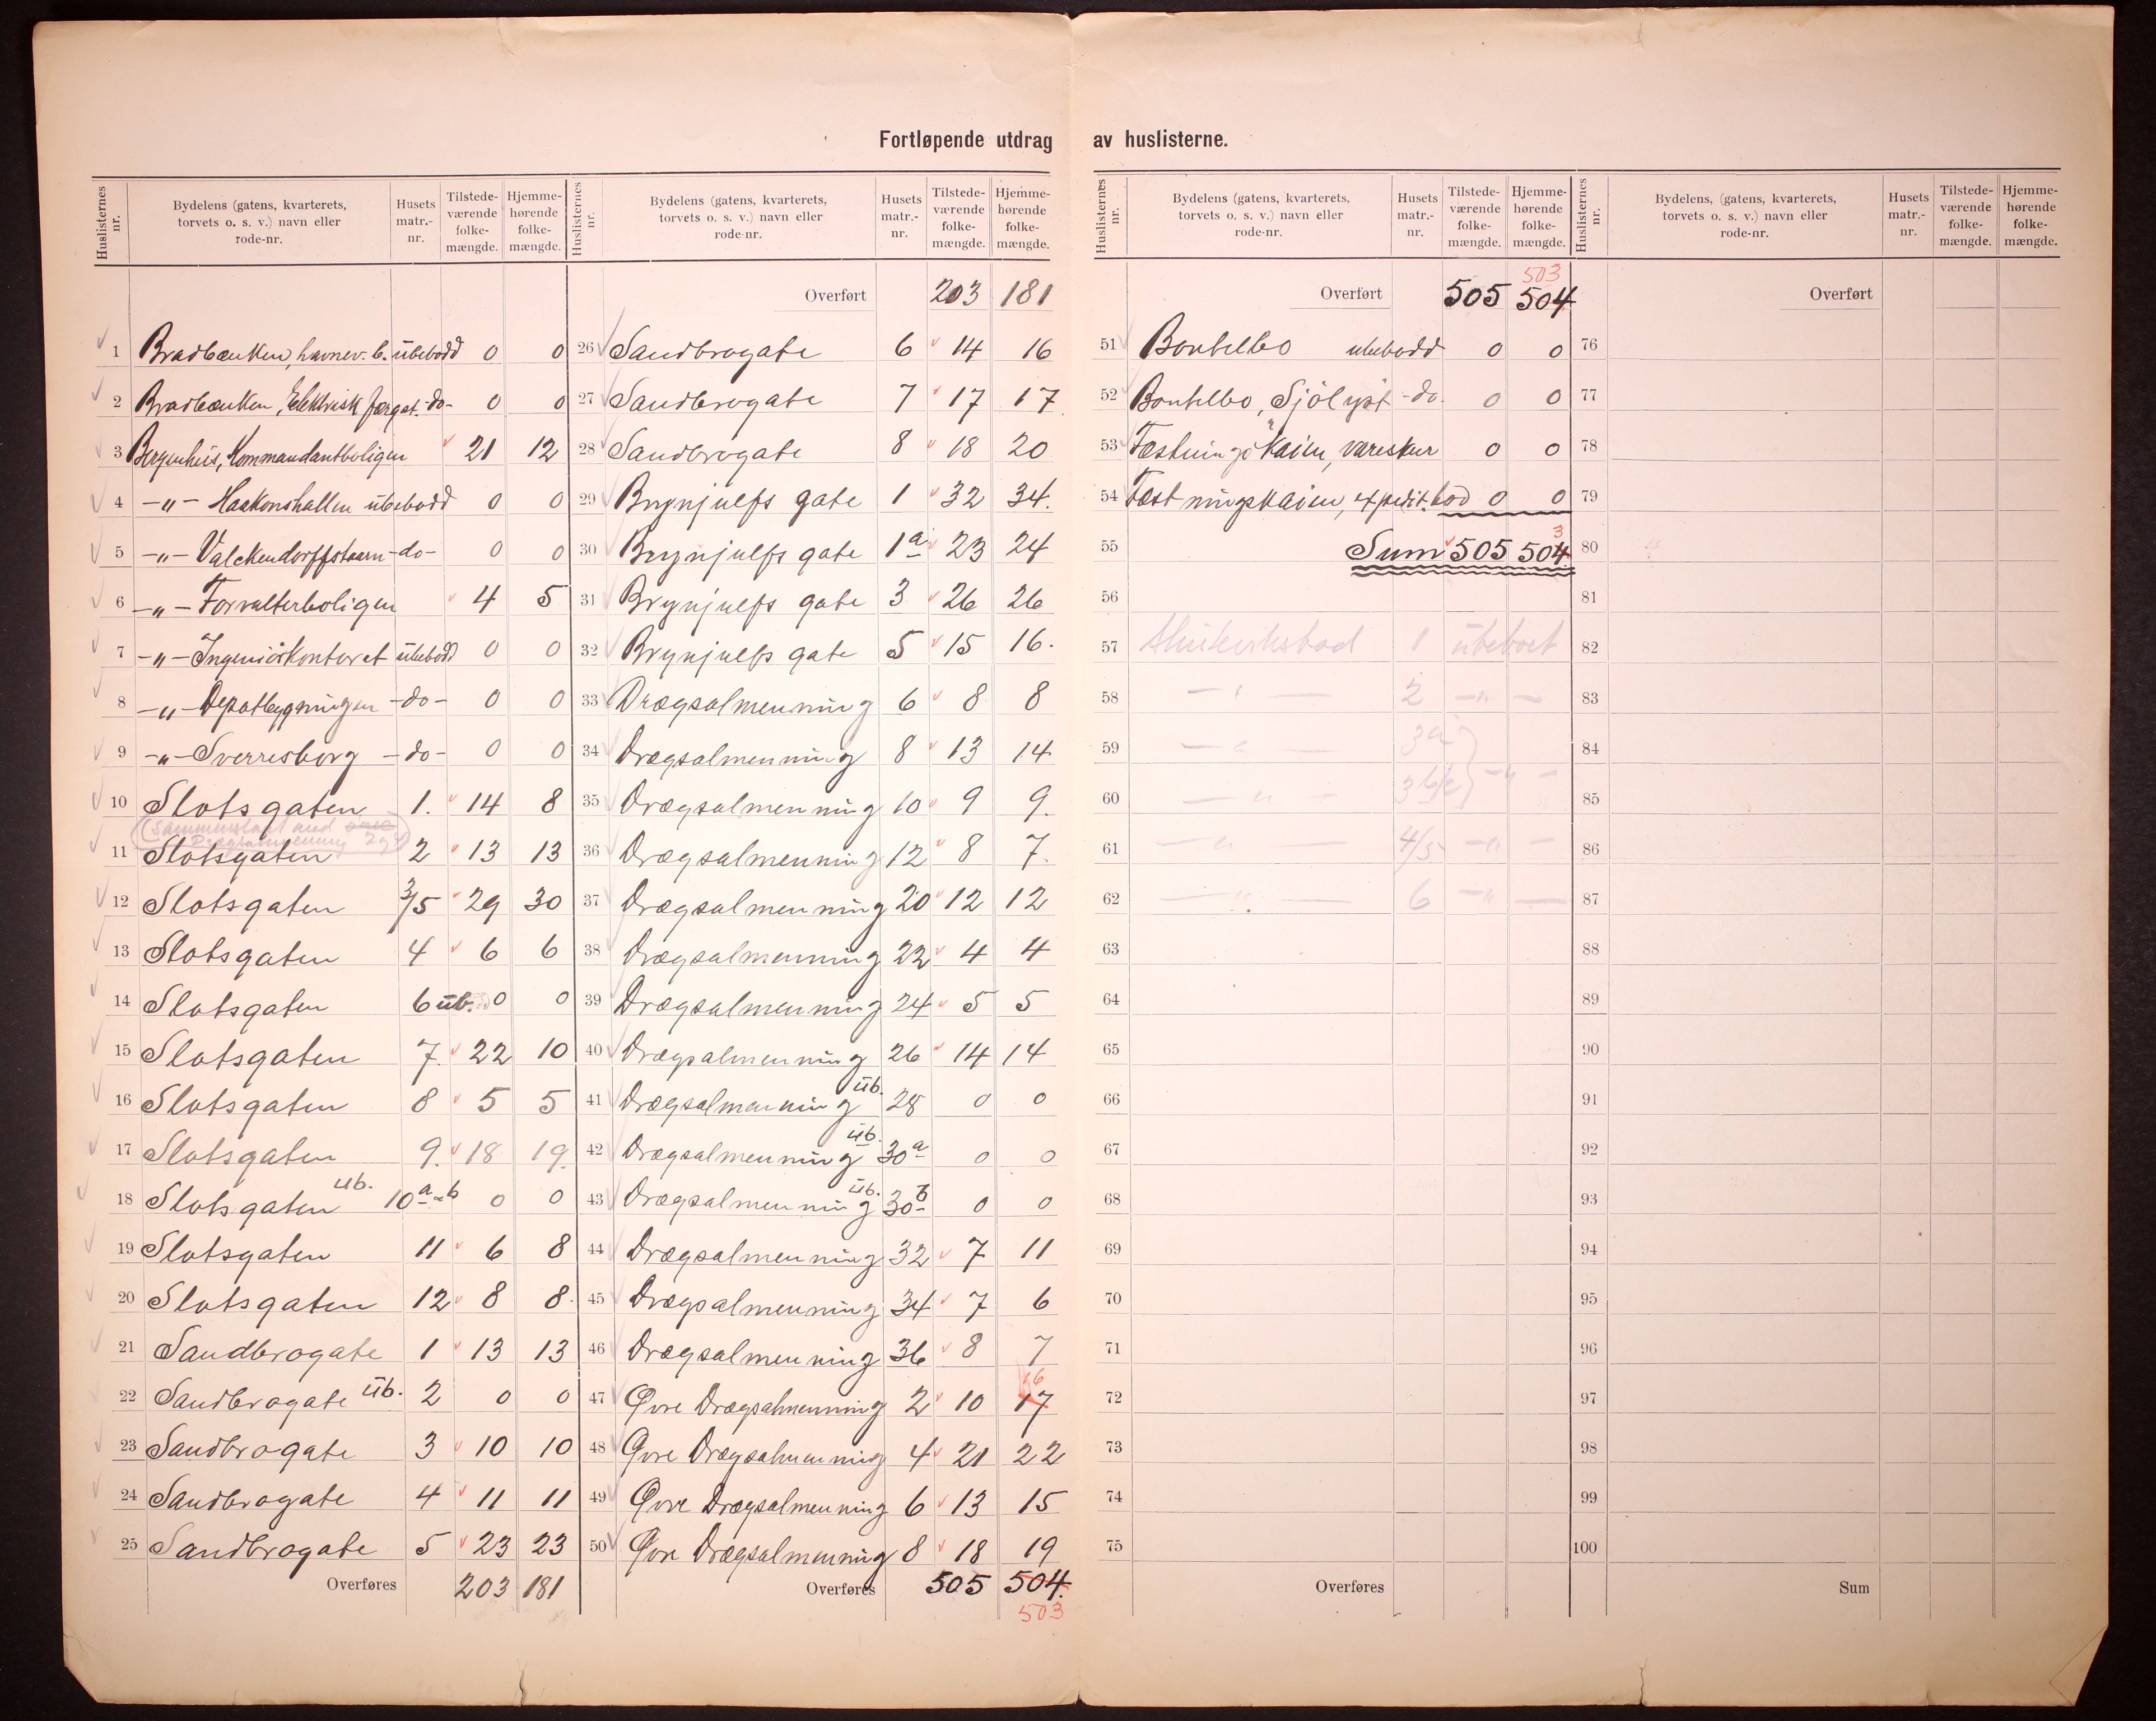 Fortløpende utdrag av huslisterne.
Huslisternes nr. | Bydelens (gatens, kvarterets, torvets o. s. v.) navn eller rode-nr. | Husets matr.-nr. | Tilstede-værende folke-mængde. | Hjemme-hørende folke-mængde.
1 Bradbænken, havnev. b. übebodd 0 0
2 Bradbænken, Elektrisk færget. -do- 0 0
3 Bergenhus, Kommandantboligen 21 12
4 -"- Haakonshallen übebodd 0 0
5 -"- Valckendorffstaarn -do- 0 0
6 -"- Forvalterboligen 4 5
7 -"- Ingeniörkontoret übebodd 0 0
8 -"- Depotbygningen -do- 0 0
9 -"- Sverresborg -do- 0 0
10 Slotsgaten 1. 14 8
11 Slotsgaten 2 13 13
12 Slotsgaten 3/5 29 30
13 Slotsgaten 4 6 6
14 Slotsgaten 6 üb. 0 0
15 Slotsgaten 7. 22 10
16 Slotsgaten 8 5 5
17 Slotsgaten 9. 18 19.
18 Slotsgaten üb. 10a-b 0 0
19 Slotsgaten 11 6 8
20 Slotsgaten 12 8 8
21 Sandbrogate 1 13 13
22 Sandbrogate üb. 2 0 0
23 Sandbrogate 3 10 10
24 Sandbrogate 4 11 11
25 Sandbrogate 5 23 23
Overføres 203 181
Huslisternes nr. | Bydelens (gatens, kvarterets, torvets o. s. v.) navn eller rode-nr. | Husets matr.-nr. | Tilstede-værende folke-mængde. | Hjemme-hørende folke-mængde.
Overført 203 181
26 Sandbrogate 6 14 16
27 Sandbrogate 7 17 17.
28 Sandbrogate 8 18 20
29 Brynjulfs gate 1 32 34.
30 Brynjulfs gate 1a 23 24
31 Brynjulfs gate 3 26 26
32 Brynjulfs gate 5 15 16.
33 Drægsalmenning 6 8 8
34 Drægsalmenning 8 13 14
35 Drægsalmenning 10 9 9.
36 Drægsalmenning 12 8 7.
37 Drægsalmenning 20 12 12
38 Drægsalmenning 22 4 4
39 Drægsalmenning 24 5 5
40 Drægsalmenning 26 14 14
41 Drægsalmenning üb. 28 0 0
42 Drægsalmenning üb. 30a 0 0
43 Drægsalmenning üb. 30b 0 0
44 Drægsalmenning 32 7 11
45 Drægsalmenning 34 7 6
46 Drægsalmenning 36 8 7
47 Øvre Drægsalmenning 2 10 17 16
48 Øvre Drægsalmenning 4 21 22
49 Øvre Drægsalmenning 6 13 15
50 Øvre Drægsalmenning 8 18 19
Overføres 505 504.
503
Huslisternes nr. | Bydelens (gatens, kvarterets, torvets o. s. v.) navn eller rode-nr. | Husets matr.-nr. | Tilstede-værende folke-mængde. | Hjemme-hørende folke-mængde.
503
Overført 505 504
51 Bontelbo ubebodd 0 0
52 Bontelbo, Sjölyst -do. 0 0
53 Fæstningskaien, vareskur 0 0
54 Fæstningskaien, expedit. bod 0 0
55 Sum 505 504 3
56
57 1 übeboet
58 2 -"-
59 3a
60 3b/c -"-
61 -"- 4/5 -"-
62 -"- 6 -"-
63
64
65
66
67
68
69
70
71
72
73
74
75
Overføres
Huslisternes nr. | Bydelens (gatens, kvarterets, torvets o. s. v.) navn eller rode-nr. | Husets matr.-nr. | Tilstede-værende folke-mængde. | Hjemme-hørende folke-mængde.
Overført
76
77
78
79
80
81
82
83
84
85
86
87
88
89
90
91
92
93
94
95
96
97
98
99
100
Sum